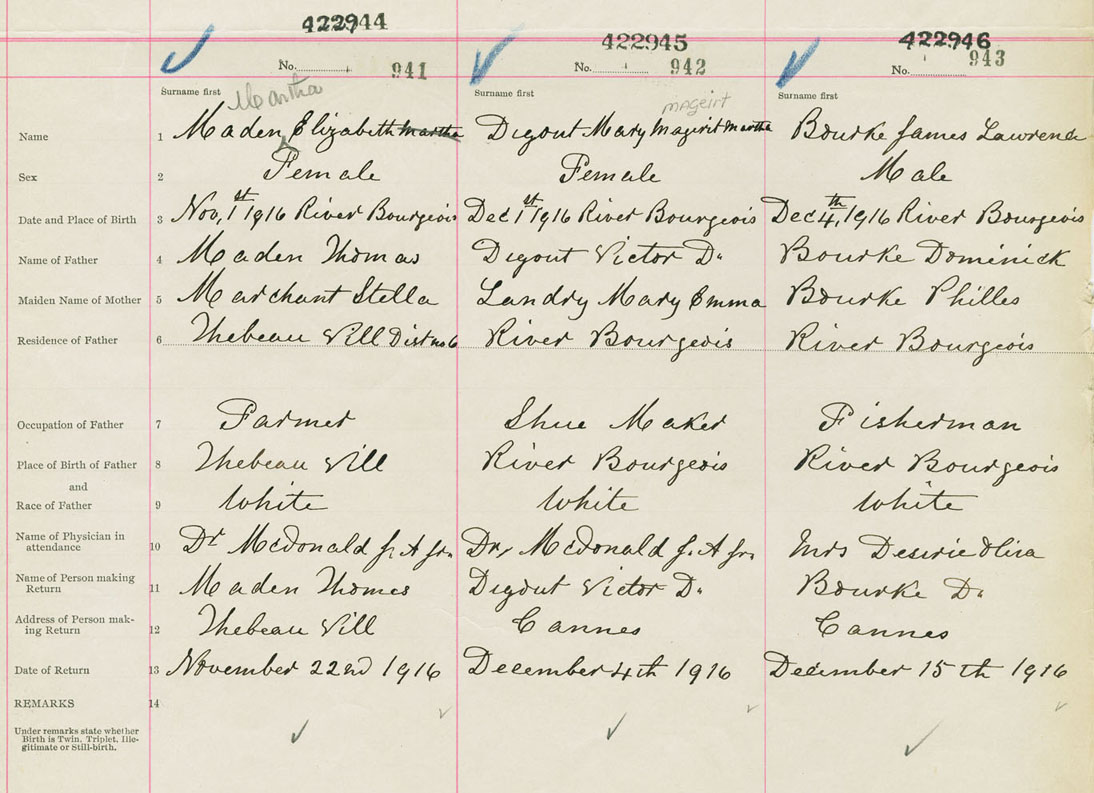 422944 422945 422946
No. 941 No. 942 No. 943
Surname first Martha Surname first mageirt Surname first
Name 1 Maden Elizabeth Martha Digout Mary Magerit Martha Bourke James Lawrence
Sex 2 Female Female Male
Date and Place of Birth 3 Nov, 1st 1916 River Bourgeois Dec 1st 1916 River Bourgeois Dec 4th, 1916 River Bourgeois
Name of Father 4 Maden Thomas Digout Victor D. Bourke Dominick
Maiden Name of Mother 5 Marchant Stella Landry Mary Emma Bourke Philles
Residence of Father 6 Thebeau Vill Dist no 6 River Bourgeois River Bourgeois
Occupation of Father 7 Farmer Shue Maker Fisherman
Place of Birth of Father 8 Thebeau Vill River Bourgeois River Bourgeois
and
Race of Father 9 White White White
Name of Physician in
attendance 10 Dr McDonald J. A Jr. Dr, McDonald J. A Jr. Mrs Desirie
Name of Person making
Return 11 Maden Thomes Digout Victor D. Bourke D.
Address of Person mak-
ing Return 12 Thebeau Vill Cannes Cannes
Date of Return 13 November 22nd 1916 December 4th 1916 December 15th 1916
REMARKS 14
Under remarks state whether
Birth is Twin, Triplet, Ille-
gitimate or Still-birth.